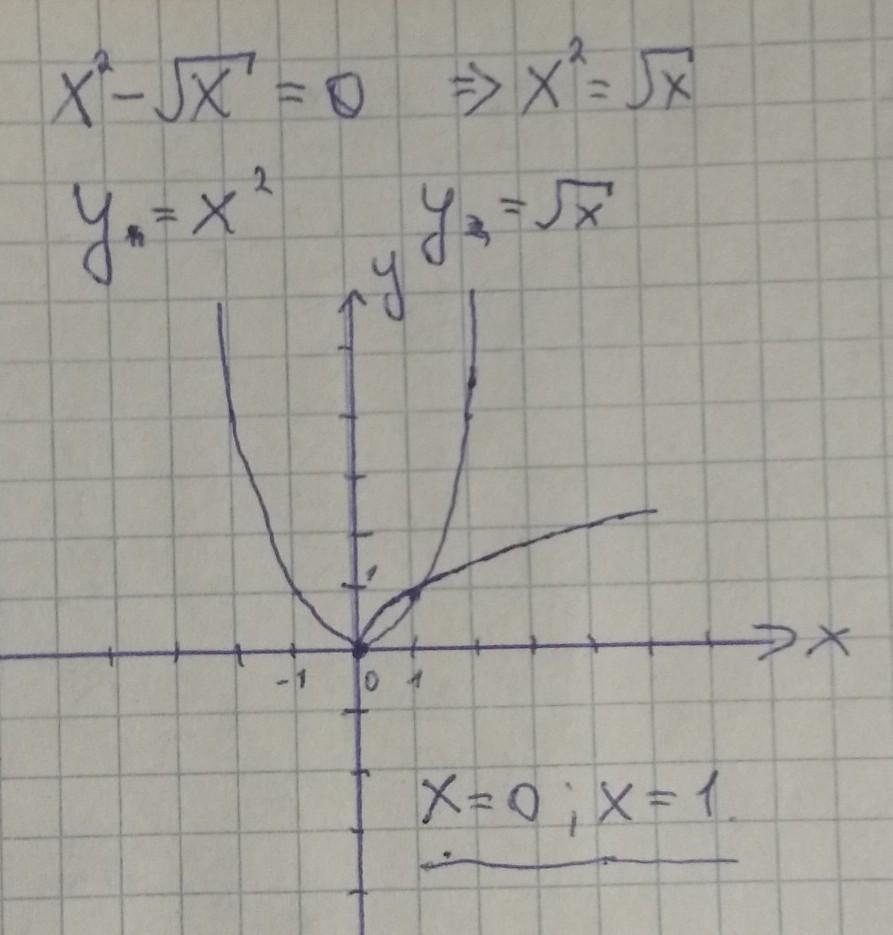 x² - √x = 0 ⇒ x² = √x
y₁ = x² y₂ = √x
y
1
x
-1 0 1
x = 0 ; x = 1.